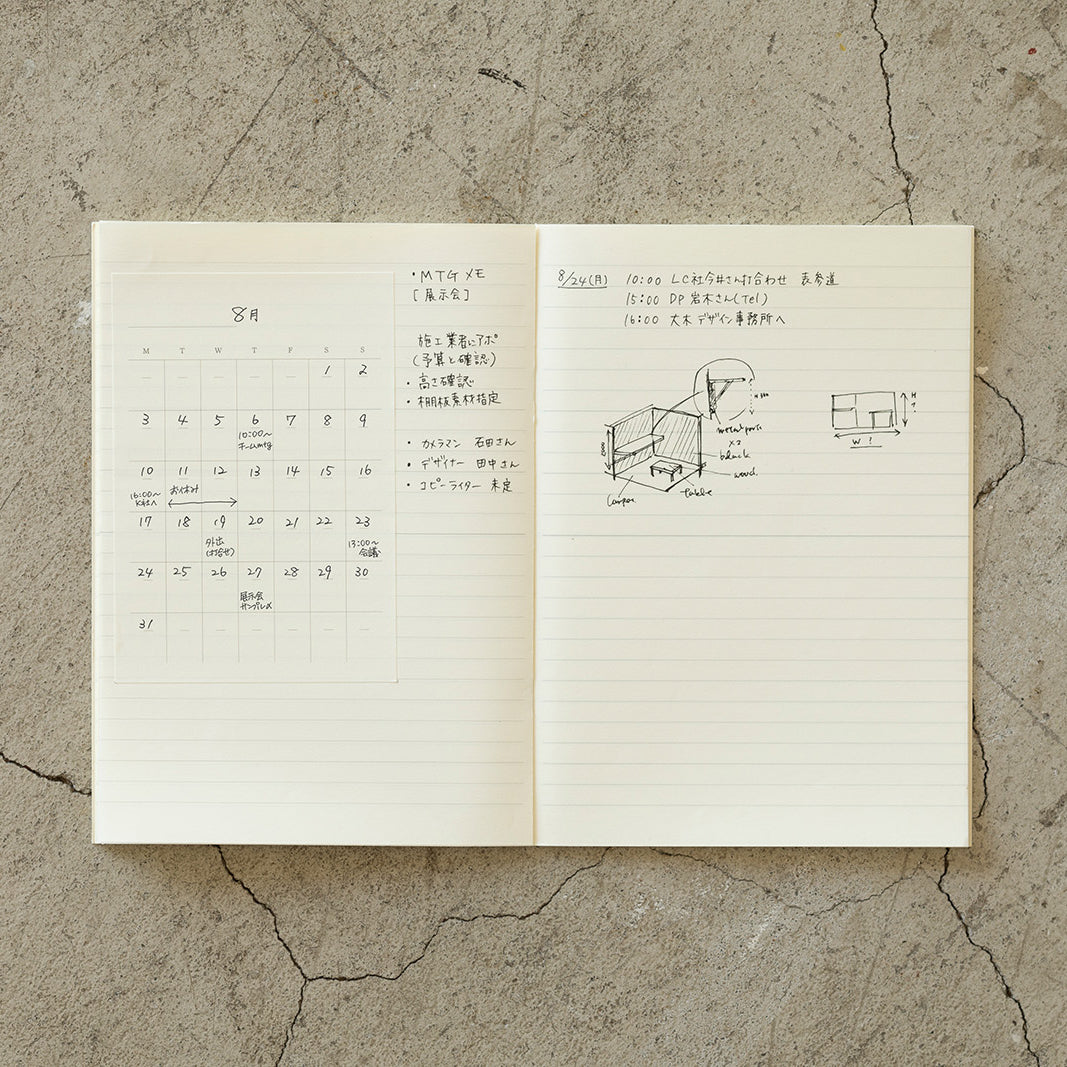 8月
M T W T F S S
1 2
3 4 5 6 7 8 9
10:00〜
チームmtg
10 11 12 13 14 15 16
16:00〜
K社へ
お休み
17 18 19 20 21 22 23
外出
(打合せ)
13:00〜
会議
24 25 26 27 28 29 30
展示会
サンプル〆
31
・MTG メモ
[展示会]
施工業者にアポ
(予算と確認)
・高さ確認
・棚板素材指定
・カメラマン 石田さん
・デザイナー 田中さん
・コピーライター 未定
8/24(月) 10:00 LC社今井さん打合わせ 表参道
15:00 DP 岩木さん(Tel)
16:00 大木デザイン事務所へ
×2
black
wood.
table
H
?
W ?